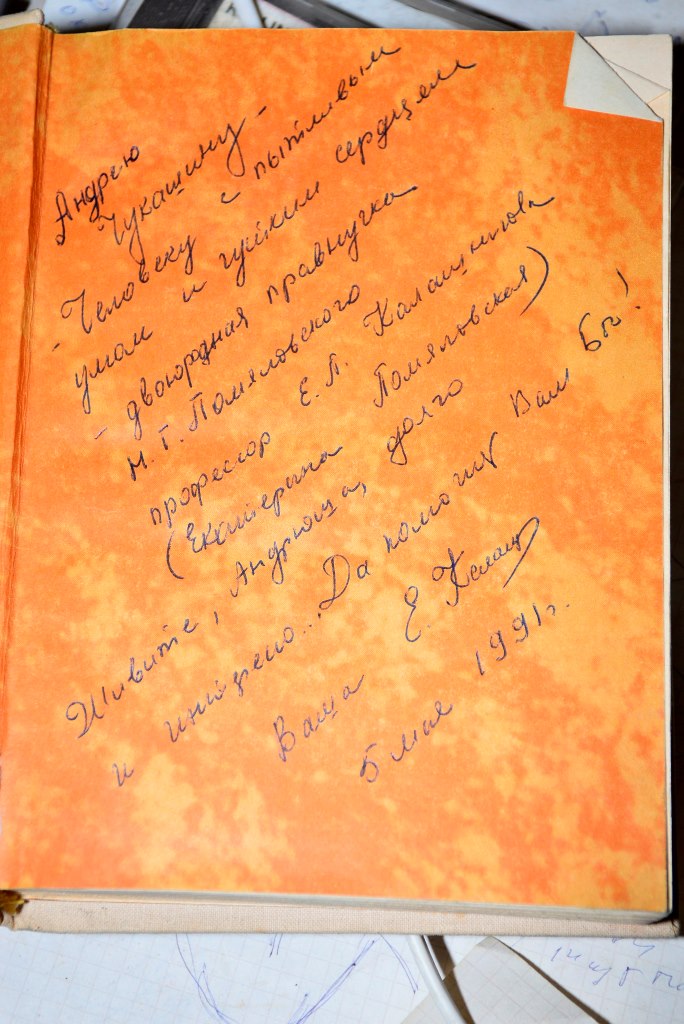 Андрею
Чукашину -
- Человеку с пытливым
умом и чутким сердцем
- двоюродная правнучка
Н. Г. Помяловского
професор Е. П. Калашникова
(Екатерина Помяловская)
Живите, Андрюша, долго
и интересно... Да поможет Вам Бог!
Ваша Е. Калаш
5 мая 1991г.